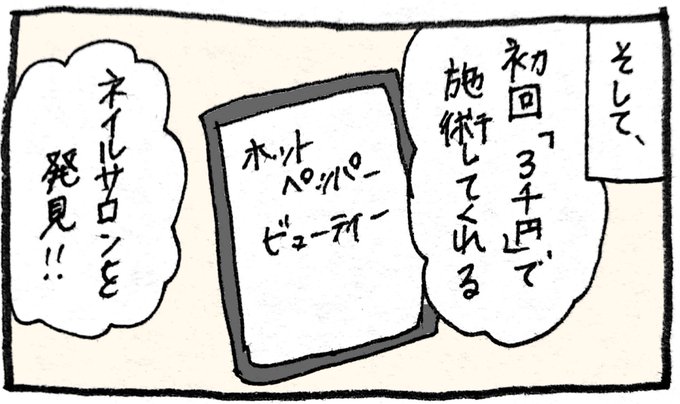 そして、
初回「3千円」で
施術してくれる
ホット
ペッパー
ビューティー
ネイルサロンを
発見!!